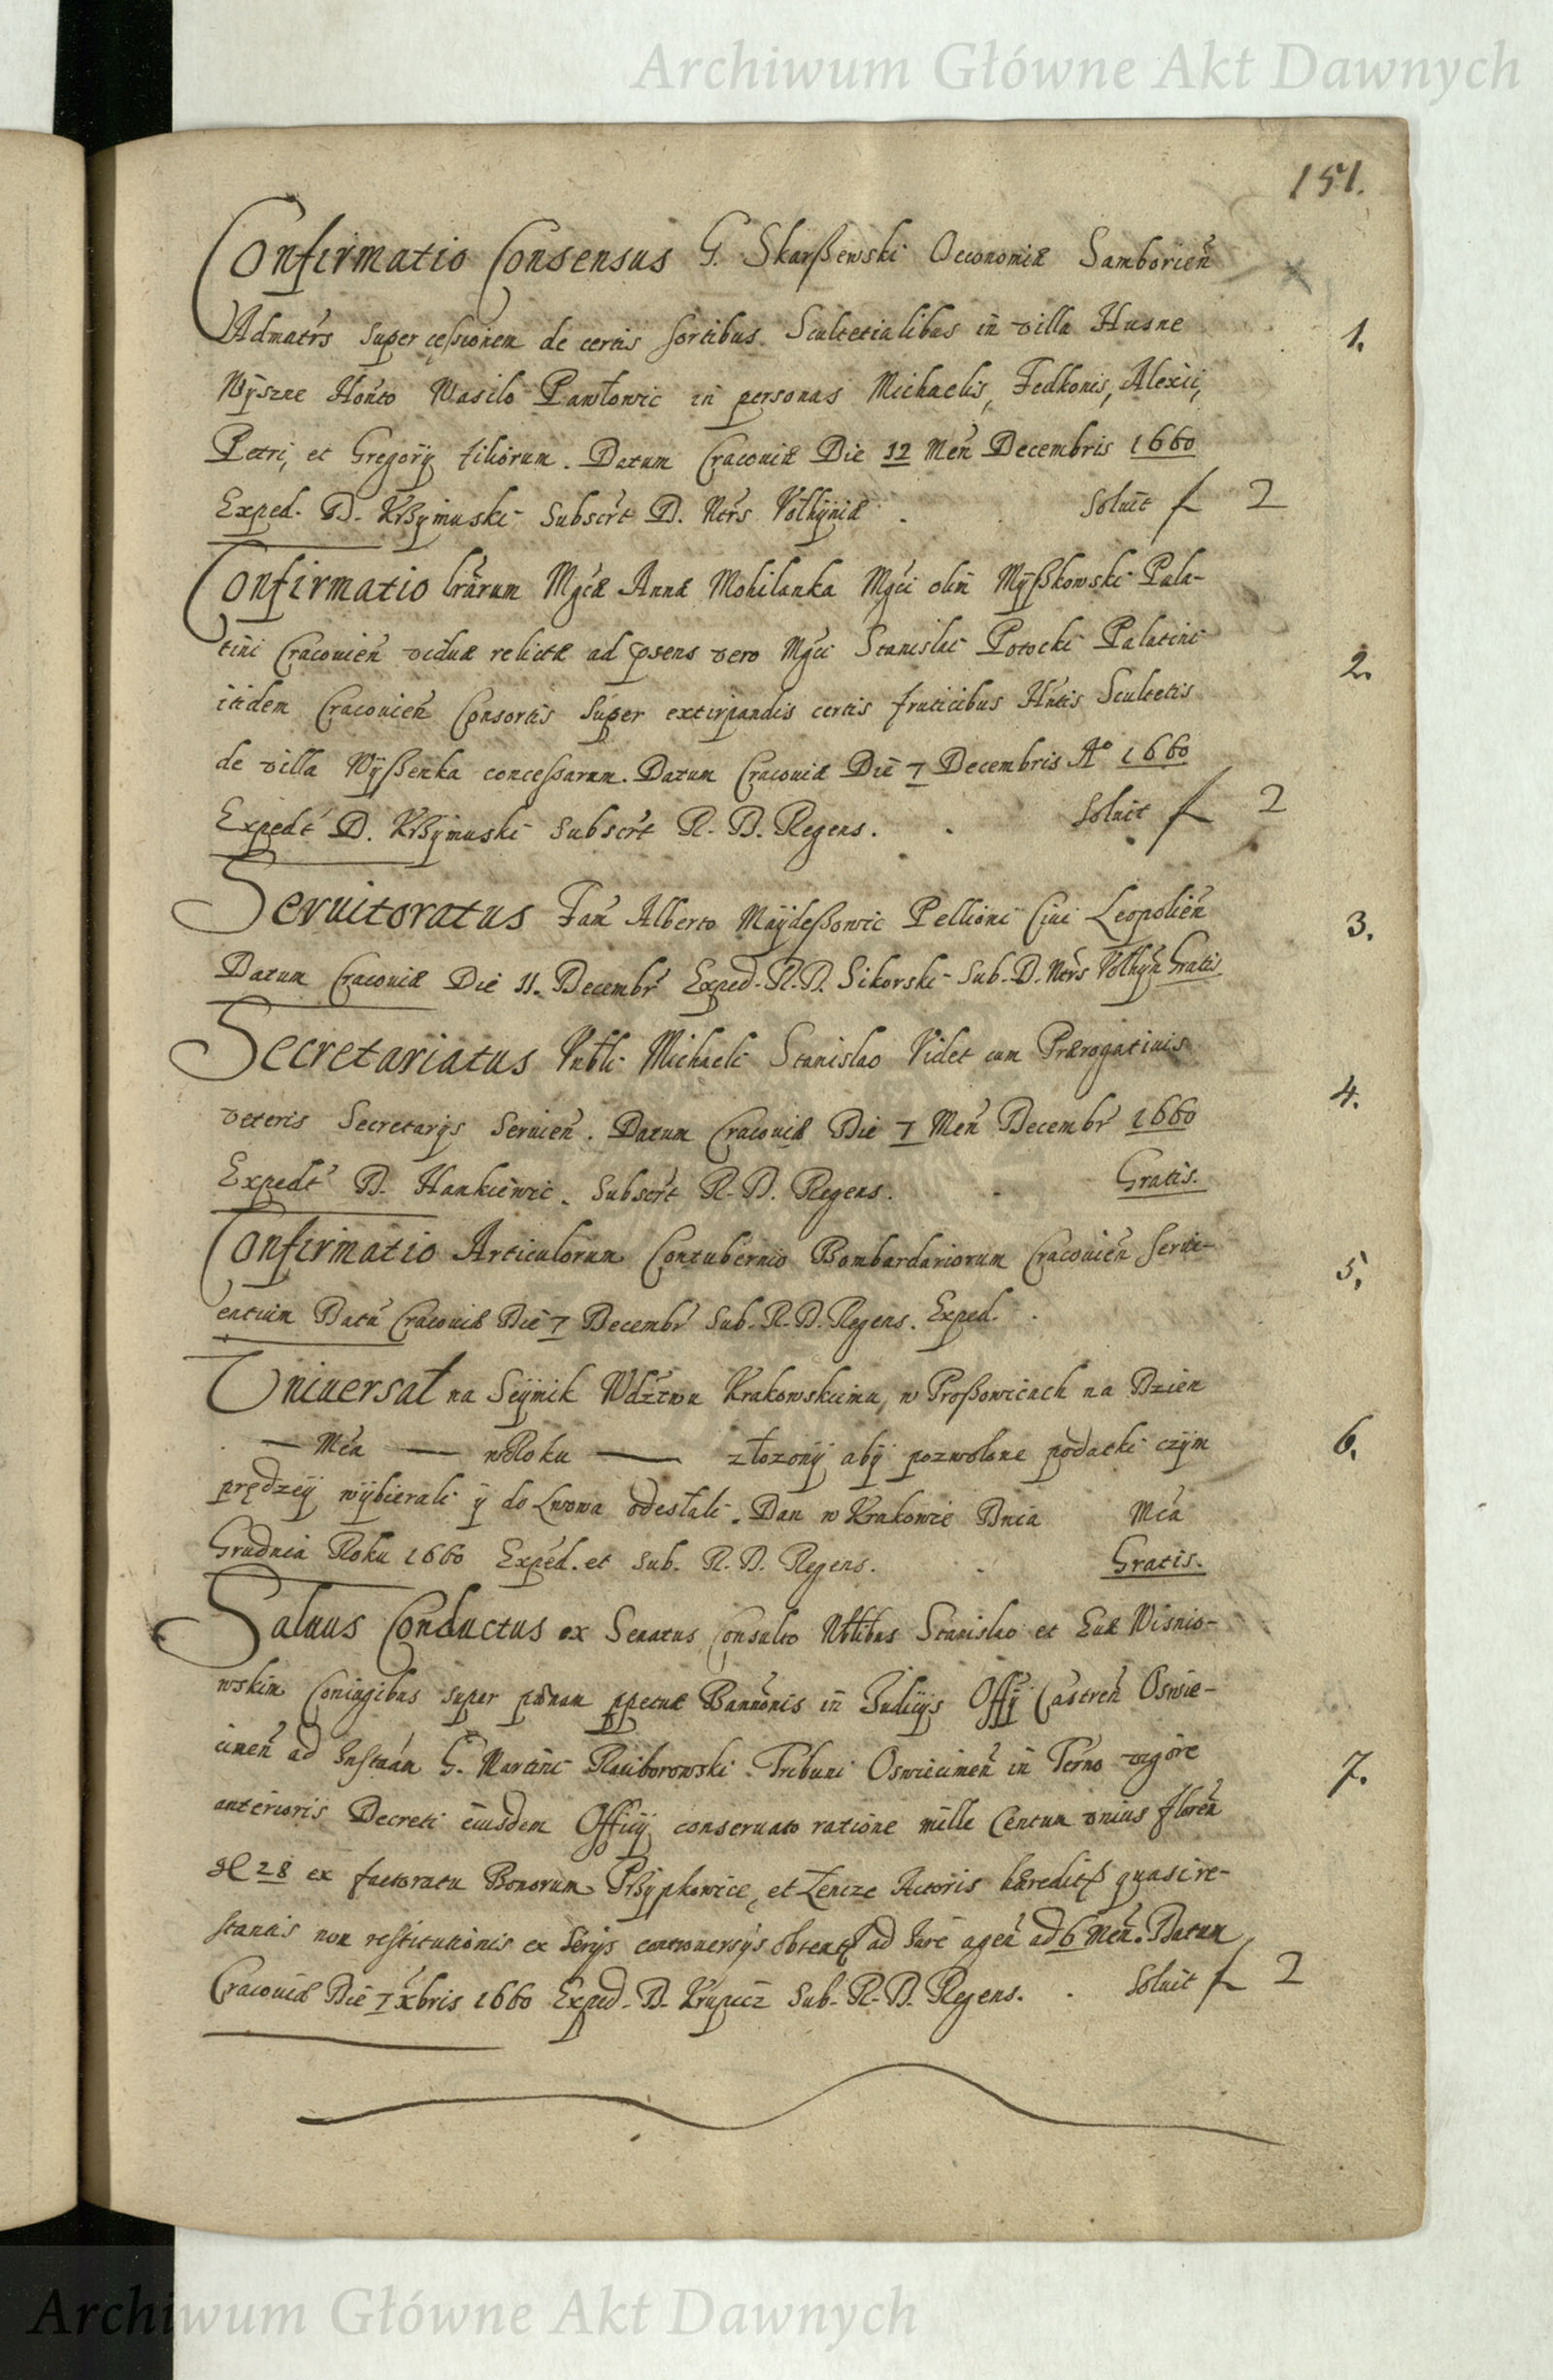 Archiwum Główne Akt Dawnych
151.
Confirmatio Consensus G. Skarßewski Oeconomiæ Samborień
Admatrs super cessionem de certis sortibus Scultetialibus in villa Husne 1.
Wyszne Hońto Wasilo Pawłowic in personas Michaelis, Fedkonis, Alexii,
Petri, et Gregorÿ filiorum. Datum Cracoviæ Die 12 Meń Decembris 1660
Exped. D. Krßymuski Subscrt D. Ntrs Volhyniæ. Soluit f 2
Confirmatio lrarum Mgcæ Annæ Mohilanka Mgci olim Myßkowski Pala-
tini Cracovień viduæ relictæ ad psens vero Mgci Stanislai Potocki Palatini 2.
itidem Cracovień Consortis super extirpandis certis fruticibus Hntis Scultetis
de villa Wyßenka concessarum. Datum Cracoviæ Die 7 Decembris Aº 1660
Expedt D. Krßymuski Subscrt R. D. Regens. Soluit f 2
Servitoratus Fam Alberto Maydeßowic Pellioni Civi Leopolień 3.
Datum Cracoviæ Die 11. Decembr Exped. R. D. Sikorski Sub. D. Ntrs Volhyń Gratis
Secretariatus Nobli Michaeli Stanislao Videt cum Prærogativis
veteris Secretarÿs Servień. Datum Cracoviæ Die 7 Meń Decembr 1660 4.
Expedt D. Hankiewic. Subscrt R. D. Regens. Gratis.
Confirmatio Articulorum Contubernio Bombardariorum Cracovień servi- 5.
entium Datū Cracoviæ Die 7 Decembr Sub. R. D. Regens. Exped.
Universał na Seymik Wdztwu Krakowskiemu, w Proßowicach na Dzien
— Mca — w Roku — złozony aby pozwolone podatki czym 6.
prędzey wybierali y do Lwowa odesłali. Dan w Krakowie Dnia Mca
Grudnia Roku 1660 Exped. et Sub. R. D. Regens. Gratis.
Salvus Conductus ex Senatus Consulto Nblibus Stanislao et Evæ Wisnio-
wskim Coniugibus super pænam ppetuæ Bannonis in Judicÿs Offÿ Castreń Oswie-
cimeń ad Instaam G. Martini Raciborowski Tribuni Oswiecimeń in Terno vigore 7.
anterioris Decreti eiusdem Officÿ conservato ratione mille Centum unius floreń
gl 28 ex factoratu Bonorum Przypkowice, et Lencze Actoris hæredit quasi re-
stantis non restitutionis ex serÿs controversÿs obtent ad Jure ageń ad 6 Meń. Datum
Cracoviæ Die 7 xbris 1660 Exped. D. Krupicz Sub. R. D. Regens. Soluit f 2
Archiwum Główne Akt Dawnych